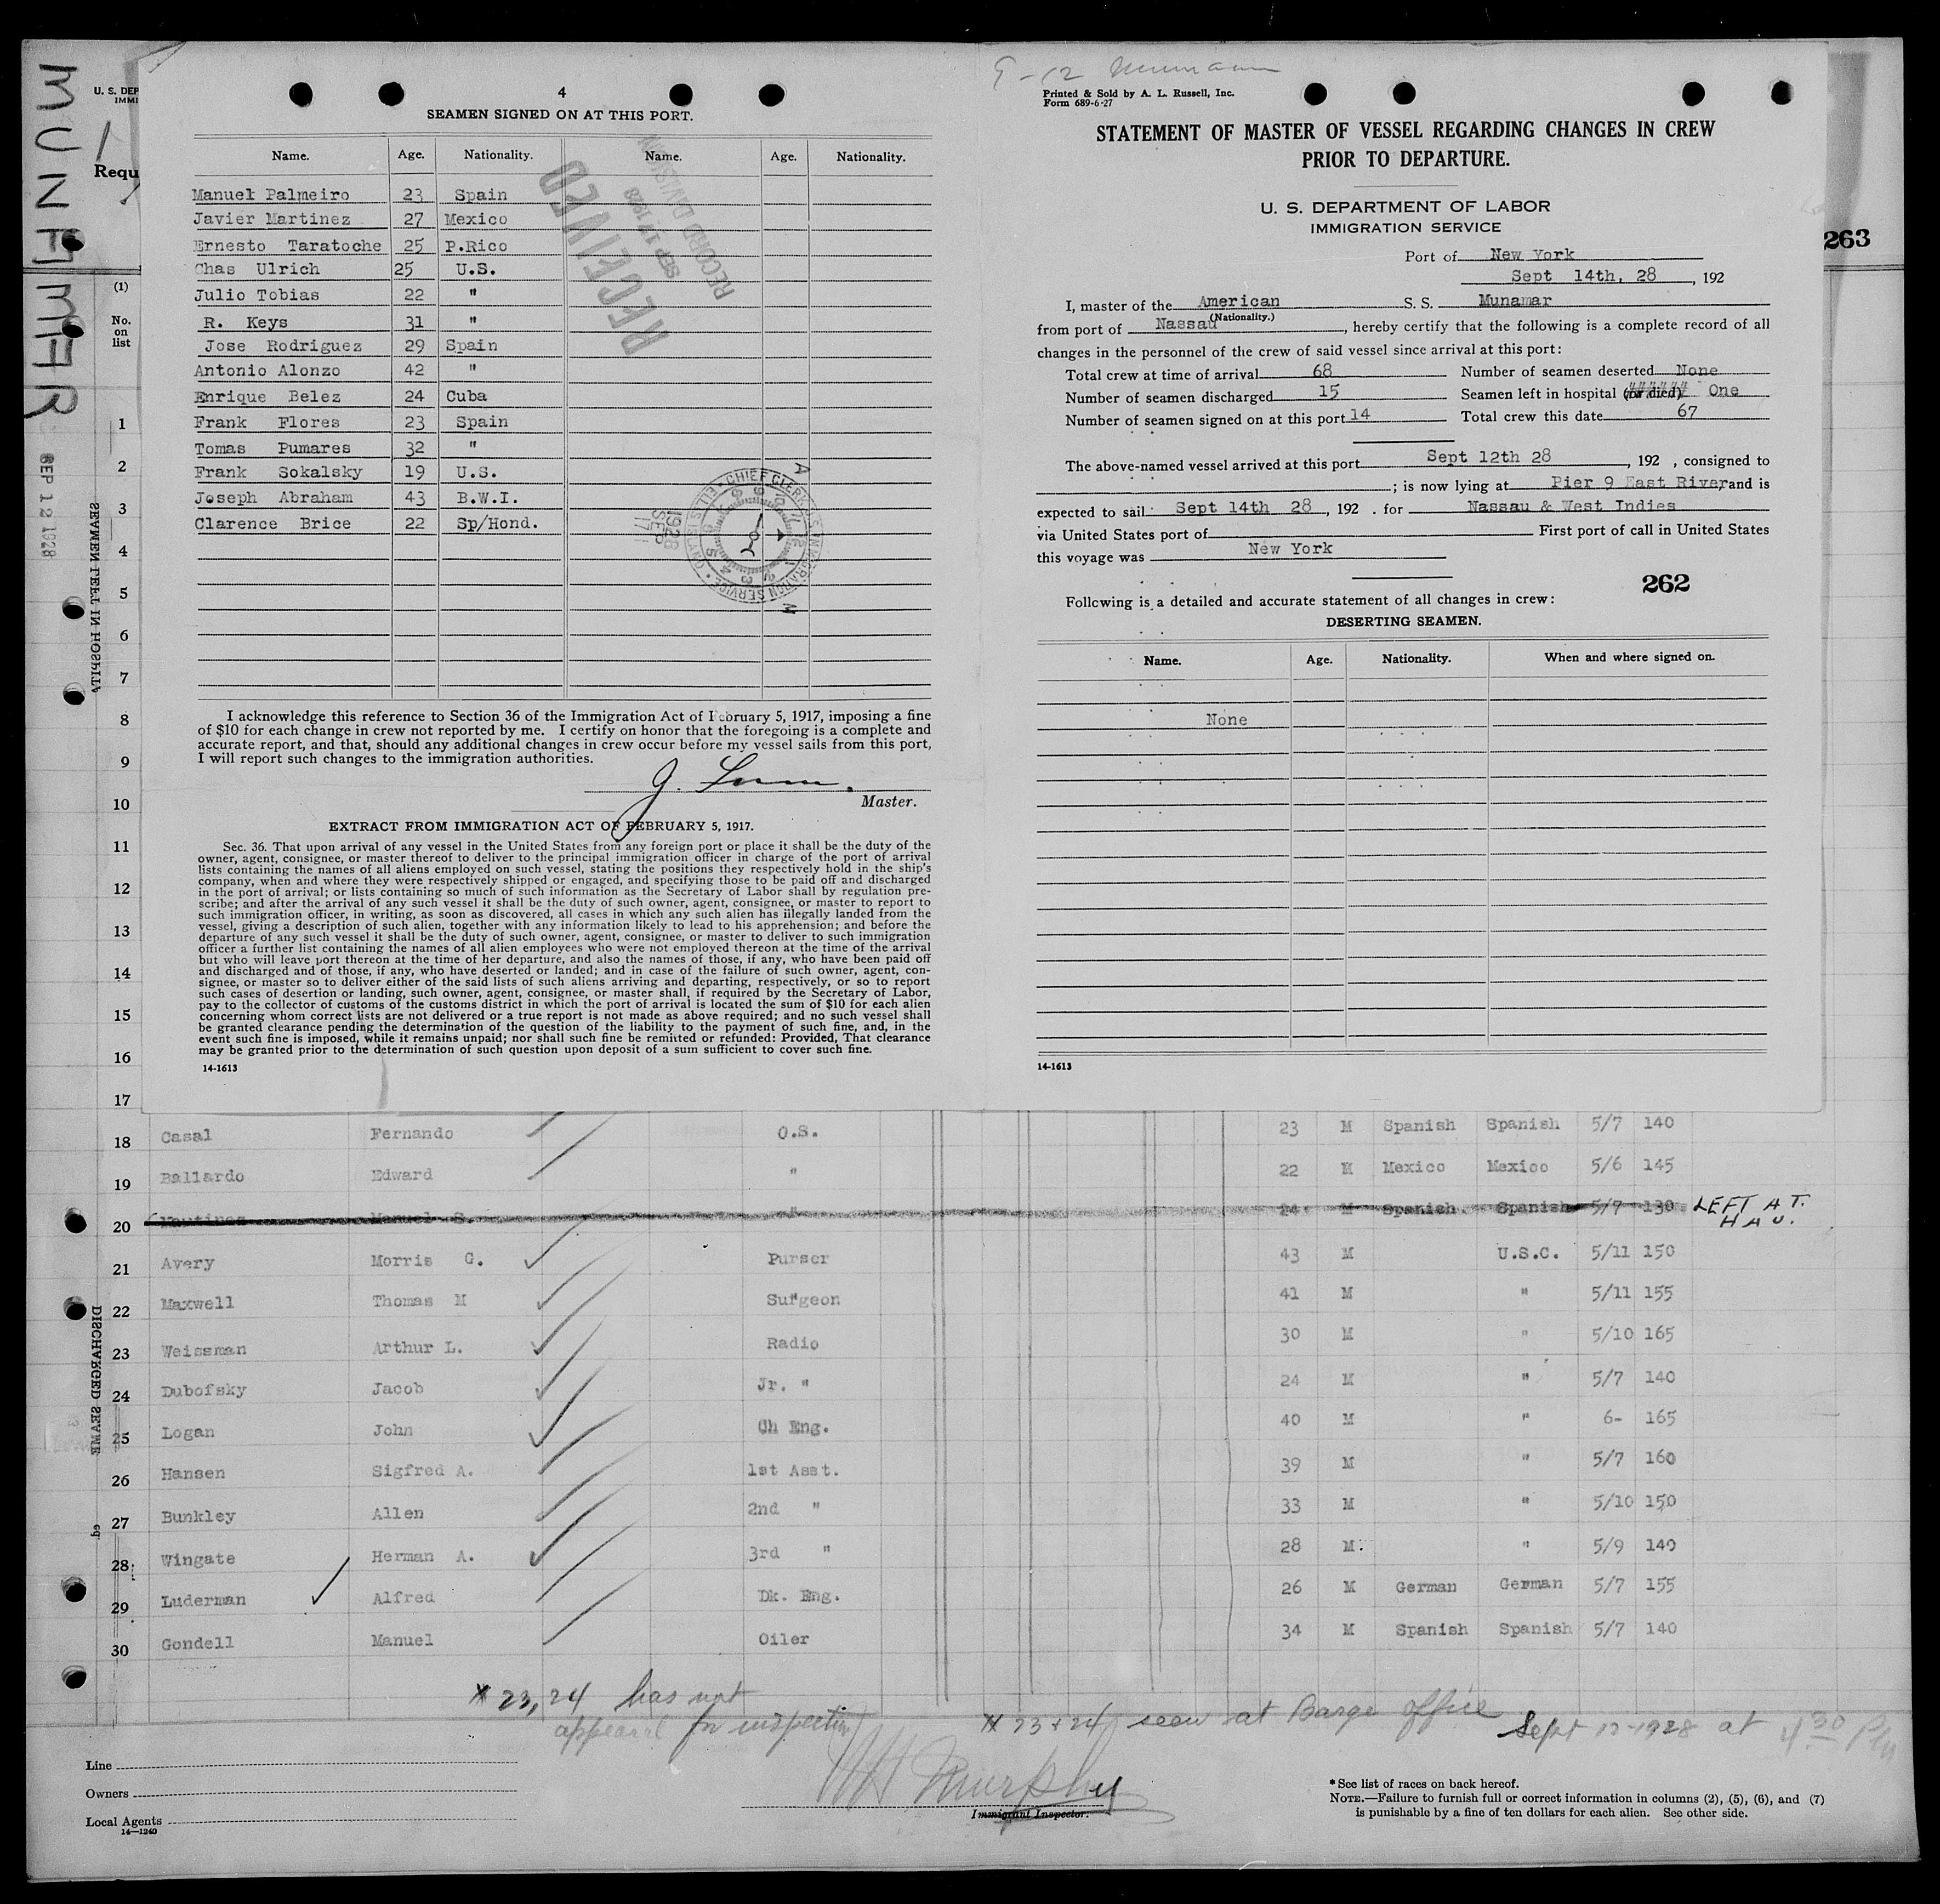 MUNAMAR
SEP 12 1928
SEAMEN LEFT IN HOSPITA
DISCHARGED SEAME
U. S. DEP
IMMI
Requ
(1)
No.
on
list
4
SEAMEN SIGNED ON AT THIS PORT.
Name. Age. Nationality. Name. Age. Nationality.
Manuel Palmeiro 23 Spain
Javier Martinez 27 Mexico
Ernesto Taratoche 25 P.Rico
Chas Ulrich 25 U.S.
Julio Tobias 22 "
R. Keys 31 "
Jose Rodriguez 29 Spain
Antonio Alonzo 42 "
Enrique Belez 24 Cuba
Frank Flores 23 Spain
Tomas Pumares 32 "
Frank Sokalsky 19 U.S.
Joseph Abraham 43 B.W.I.
Clarence Brice 22 Sp/Hond.
RECEIVED
SEP 17 1928
RECORD DIVISION
CHIEF CLERK'S
IMMIGRATION SERVICE
1928
SEP
17
I acknowledge this reference to Section 36 of the Immigration Act of February 5, 1917, imposing a fine
of $10 for each change in crew not reported by me. I certify on honor that the foregoing is a complete and
accurate report, and that, should any additional changes in crew occur before my vessel sails from this port,
I will report such changes to the immigration authorities.
Master.
EXTRACT FROM IMMIGRATION ACT OF FEBRUARY 5, 1917.
Sec. 36. That upon arrival of any vessel in the United States from any foreign port or place it shall be the duty of the
owner, agent, consignee, or master thereof to deliver to the principal immigration officer in charge of the port of arrival
lists containing the names of all aliens employed on such vessel, stating the positions they respectively hold in the ship's
company, when and where they were respectively shipped or engaged, and specifying those to be paid off and discharged
in the port of arrival; or lists containing so much of such information as the Secretary of Labor shall by regulation pre-
scribe; and after the arrival of any such vessel it shall be the duty of such owner, agent, consignee, or master to report to
such immigration officer, in writing, as soon as discovered, all cases in which any such alien has illegally landed from the
vessel, giving a description of such alien, together with any information likely to lead to his apprehension; and before the
departure of any such vessel it shall be the duty of such owner, agent, consignee, or master to deliver to such immigration
officer a further list containing the names of all alien employees who were not employed thereon at the time of the arrival
but who will leave port thereon at the time of her departure, and also the names of those, if any, who have been paid off
and discharged and of those, if any, who have deserted or landed; and in case of the failure of such owner, agent, con-
signee, or master so to deliver either of the said lists of such aliens arriving and departing, respectively, or so to report
such cases of desertion or landing, such owner, agent, consignee, or master shall, if required by the Secretary of Labor,
pay to the collector of customs of the customs district in which the port of arrival is located the sum of $10 for each alien
concerning whom correct lists are not delivered or a true report is not made as above required; and no such vessel shall
be granted clearance pending the determination of the question of the liability to the payment of such fine, and, in the
event such fine is imposed, while it remains unpaid; nor shall such fine be remitted or refunded: Provided, That clearance
may be granted prior to the determination of such question upon deposit of a sum sufficient to cover such fine.
14-1613
9-12 Munamar
Printed & Sold by A. L. Russell, Inc.
Form 689-6-27
STATEMENT OF MASTER OF VESSEL REGARDING CHANGES IN CREW
PRIOR TO DEPARTURE.
U. S. DEPARTMENT OF LABOR
IMMIGRATION SERVICE
263
Port of New York
Sept 14th, 28, 192
I, master of the American S. S. Munamar
(Nationality.)
from port of Nassau, hereby certify that the following is a complete record of all
changes in the personnel of the crew of said vessel since arrival at this port:
Total crew at time of arrival 68 Number of seamen deserted None
Number of seamen discharged 15 Seamen left in hospital (or died) One
Number of seamen signed on at this port 14 Total crew this date 67
The above-named vessel arrived at this port Sept 12th 28, 192 , consigned to
; is now lying at Pier 9 East River and is
expected to sail Sept 14th 28, 192 . for Nassau & West Indies
via United States port of First port of call in United States
this voyage was New York
262
Following is a detailed and accurate statement of all changes in crew:
DESERTING SEAMEN.
Name. Age. Nationality. When and where signed on.
None
14-1613
1
2
3
4
5
6
7
8
9
10
11
12
13
14
15
16
17
18 Casal Fernando O.S. 23 M Spanish Spanish 5/7 140
19 Ballardo Edward " 22 M Mexico Mexico 5/6 145
20 Martinez Manuel S. " 24 M Spanish Spanish 5/7 130 LEFT AT. HAV.
21 Avery Morris G. Purser 43 M U.S.C. 5/11 150
22 Maxwell Thomas M Surgeon 41 M " 5/11 155
23 Weissman Arthur L. Radio 30 M " 5/10 165
24 Dubofsky Jacob Jr. " 24 M " 5/7 140
25 Logan John Ch Eng. 40 M " 6- 165
26 Hansen Sigfred A. 1st Asst. 39 M " 5/7 160
27 Bunkley Allen 2nd " 33 M " 5/10 150
28 Wingate Herman A. 3rd " 28 M " 5/9 140
29 Luderman Alfred Dk. Eng. 26 M German German 5/7 155
30 Gondell Manuel Oiler 34 M Spanish Spanish 5/7 140
* 23, 24 has not
appeared for inspection
* 23 + 24 seen at Barge office Sept 12-1928 at 4.30 PM
Murphy
Immigrant Inspector.
Line
Owners
Local Agents
14-1240
* See list of races on back hereof.
NOTE.—Failure to furnish full or correct information in columns (2), (5), (6), and (7)
is punishable by a fine of ten dollars for each alien. See other side.